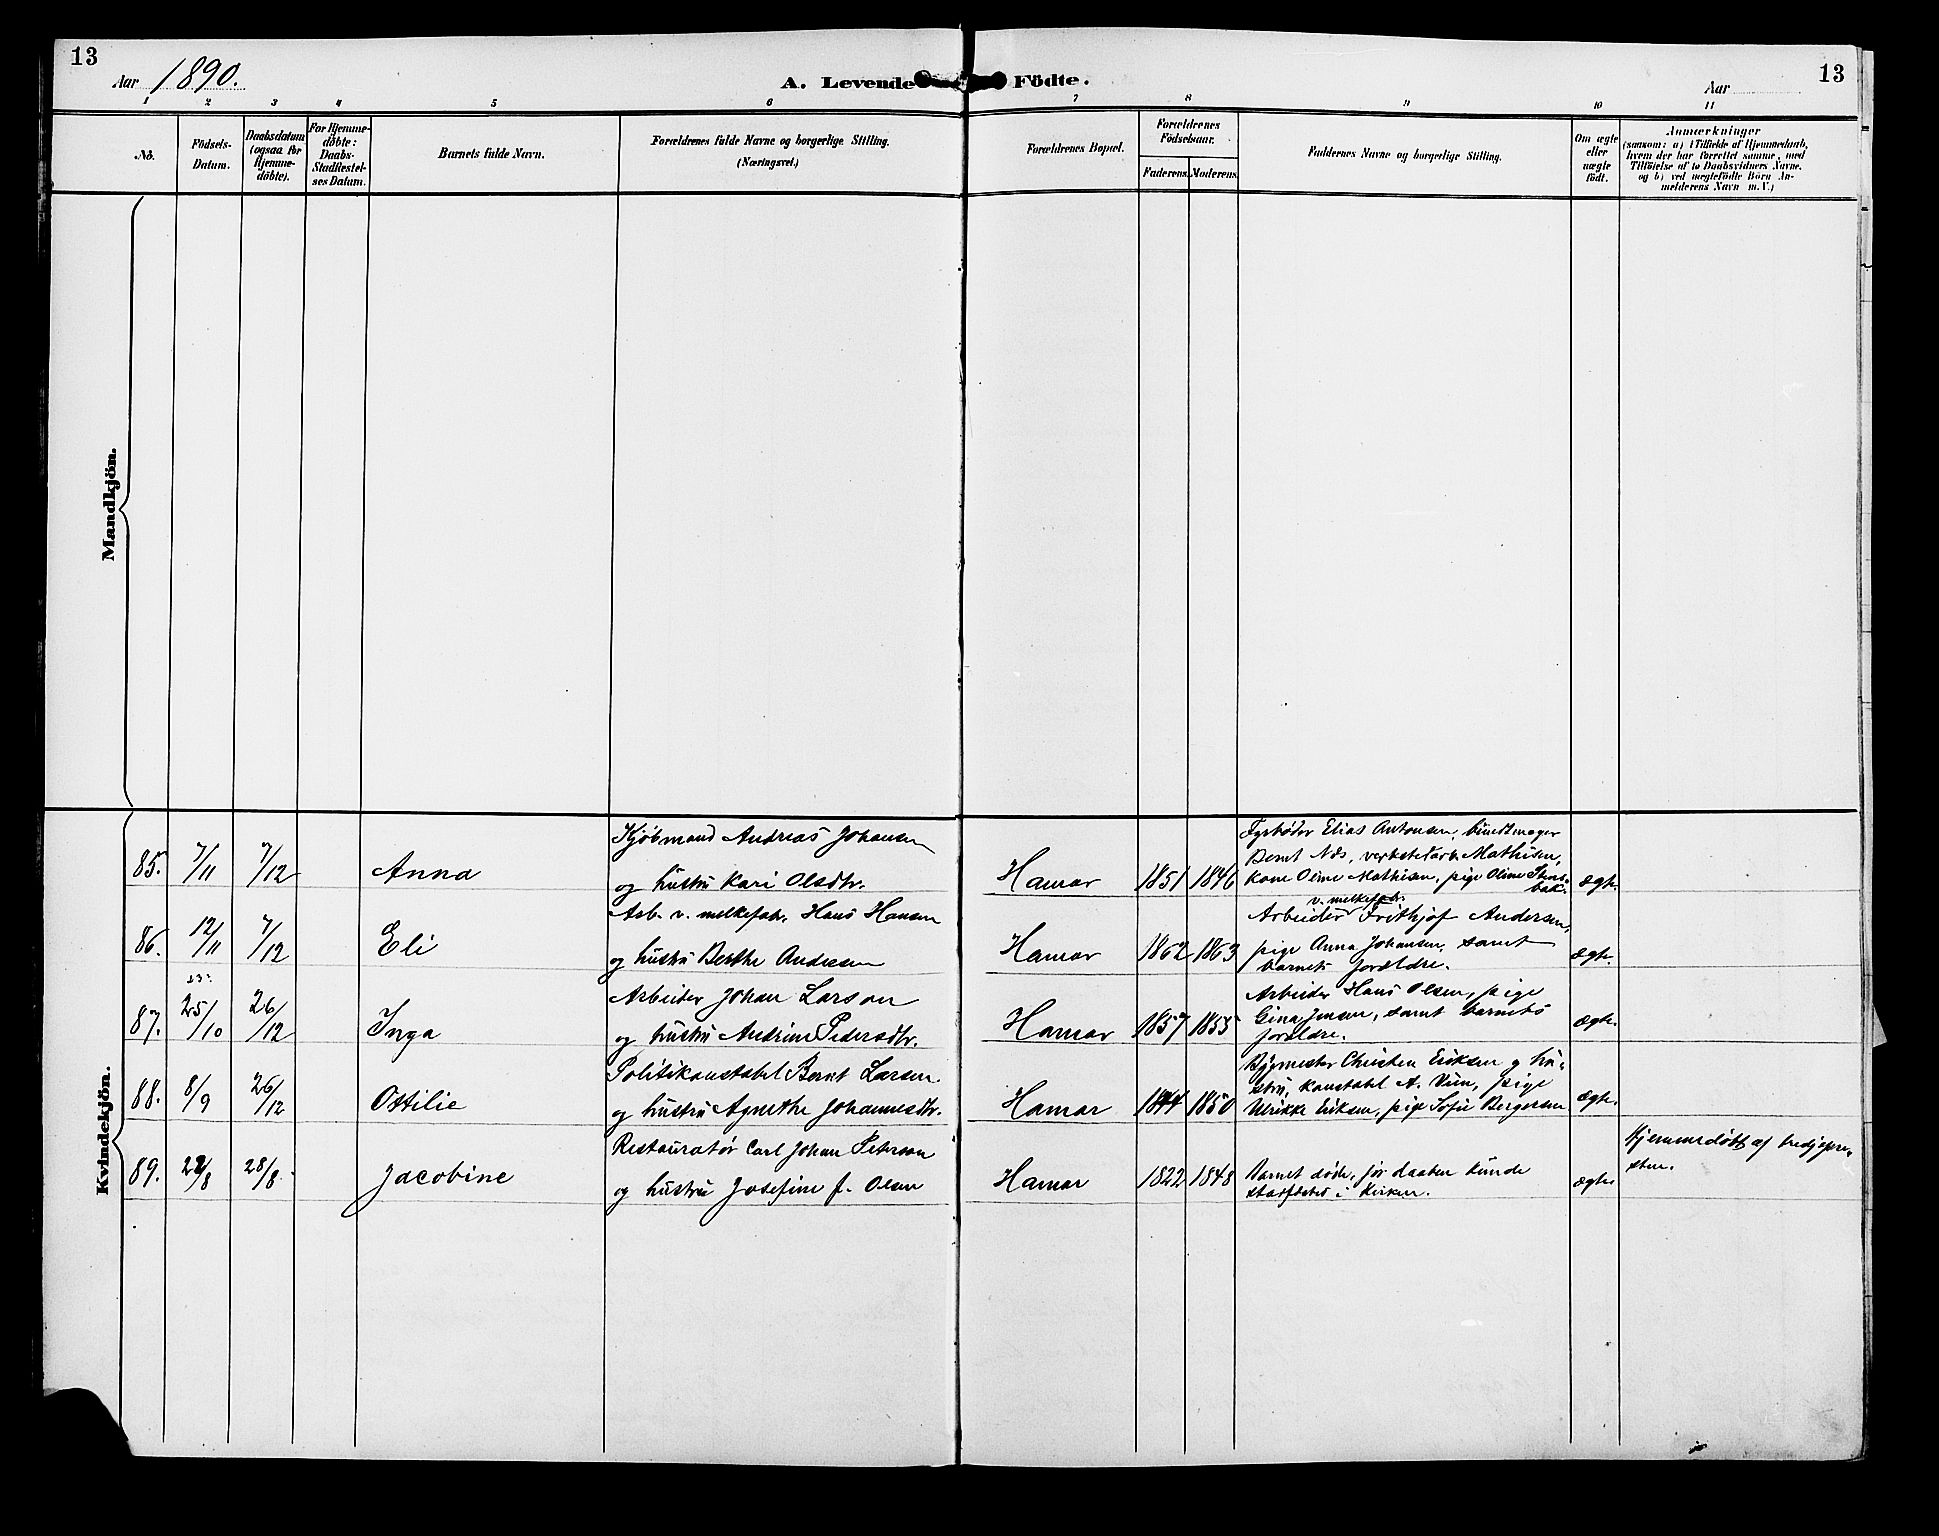 13
Aar 1890.
A. Levende Födte.
Aar
13
1 2 3 4 5 6 7 8 9 10 11
No.
Födsels-Datum.
Daabsdatum (ogsaa for Hjemme-döbte).
For Hjemme-döbte: Daabs-Stadfæstel-ses Datum.
Barnets fulde Navn.
Forældrenes fulde Navne og borgerlige Stilling.
(Næringsvei.)
Forældrenes Bopæl.
Forældrenes Födselsaar.
Faderens. Moderens.
Faddernes Navne og borgerlige Stilling.
Om ægte eller uægte födt.
Anmærkninger
(saasom: a) i Tilfælde af Hjemmedaab,
hvem der har forrettet samme, med
Tilföielse af to Daabsvidners Navne,
og b) ved uægtefödte Börn An-
melderens Navn m. V.)
Mandkjön.
Kvindekjön.
85. 7/11 7/12 Anna
Kjøbmand Andreas Johansen
og hustru Kari Olsdtr.
Hamar 1851 1846
Fyrbøder Elias Antonsen, bundtmager
Bernt Nss, verkstedarb. Mathisen,
kone Oline Mathisen, pige Oline Stens-
bak.
ægte.
86. 12/11 7/12 Eli
Arb. v. melkefabr. Hans Hansen
og hustru Berthe Andersen
Hamar 1862 1863
v. melkefabr.
Arbeider Frithjof Andersen,
pige Anna Johansen, samt
barnets forældre.
ægte.
87. 25/10 26/12 Inga
Arbeider Johan Larsen
og hustru Andrine Pedersdtr.
Hamar 1857 1855
Arbeider Hans Olsen, pige
Gina Jensen, samt barnets
forældre.
ægte.
88. 8/9 26/12 Ottilie
Politikonstabel Bernt Larsen
og hustru Agnethe Johannesdtr.
Hamar 1844 1850
Bygmester Christen Eriksen og hu-
stru, konstabel A. Vien, pige
Ulrikke Eriksen, pige Sofie Bergersen
ægte.
89. 28/8 28/8. Jacobine
Restauratør Carl Johan Peterson
og hustru Josefine f. Olsen
Hamar 1822 1848
Barnet døde, før daaben kunde
stadfæstes i kirken.
ægte
Hjemmedøbt af tredjepre-
sten.